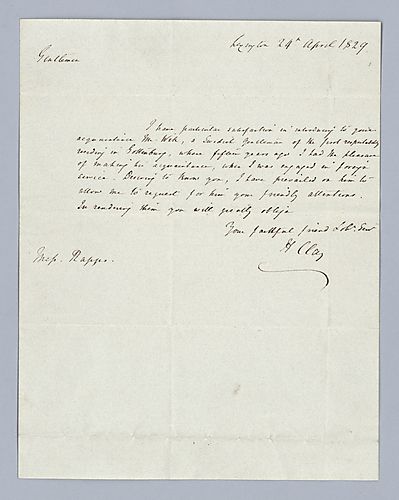 Lexington 24th April 1829
Gentlemen
I have particular satisfaction in introducing to your
acquaintance Mr. Wek, a Swedish Gentleman of the first respectability
residing in Gottenburg, where fifteen years ago I had the pleasure
of making his acquaintance, when I was engaged in foreign
service. Desiring to know you, I have prevailed on him to
allow me to request for him your friendly attentions.
In rendering them you will greatly oblige
Your faithful friend & ob. Serv
H Clay
Mess. Rapps.